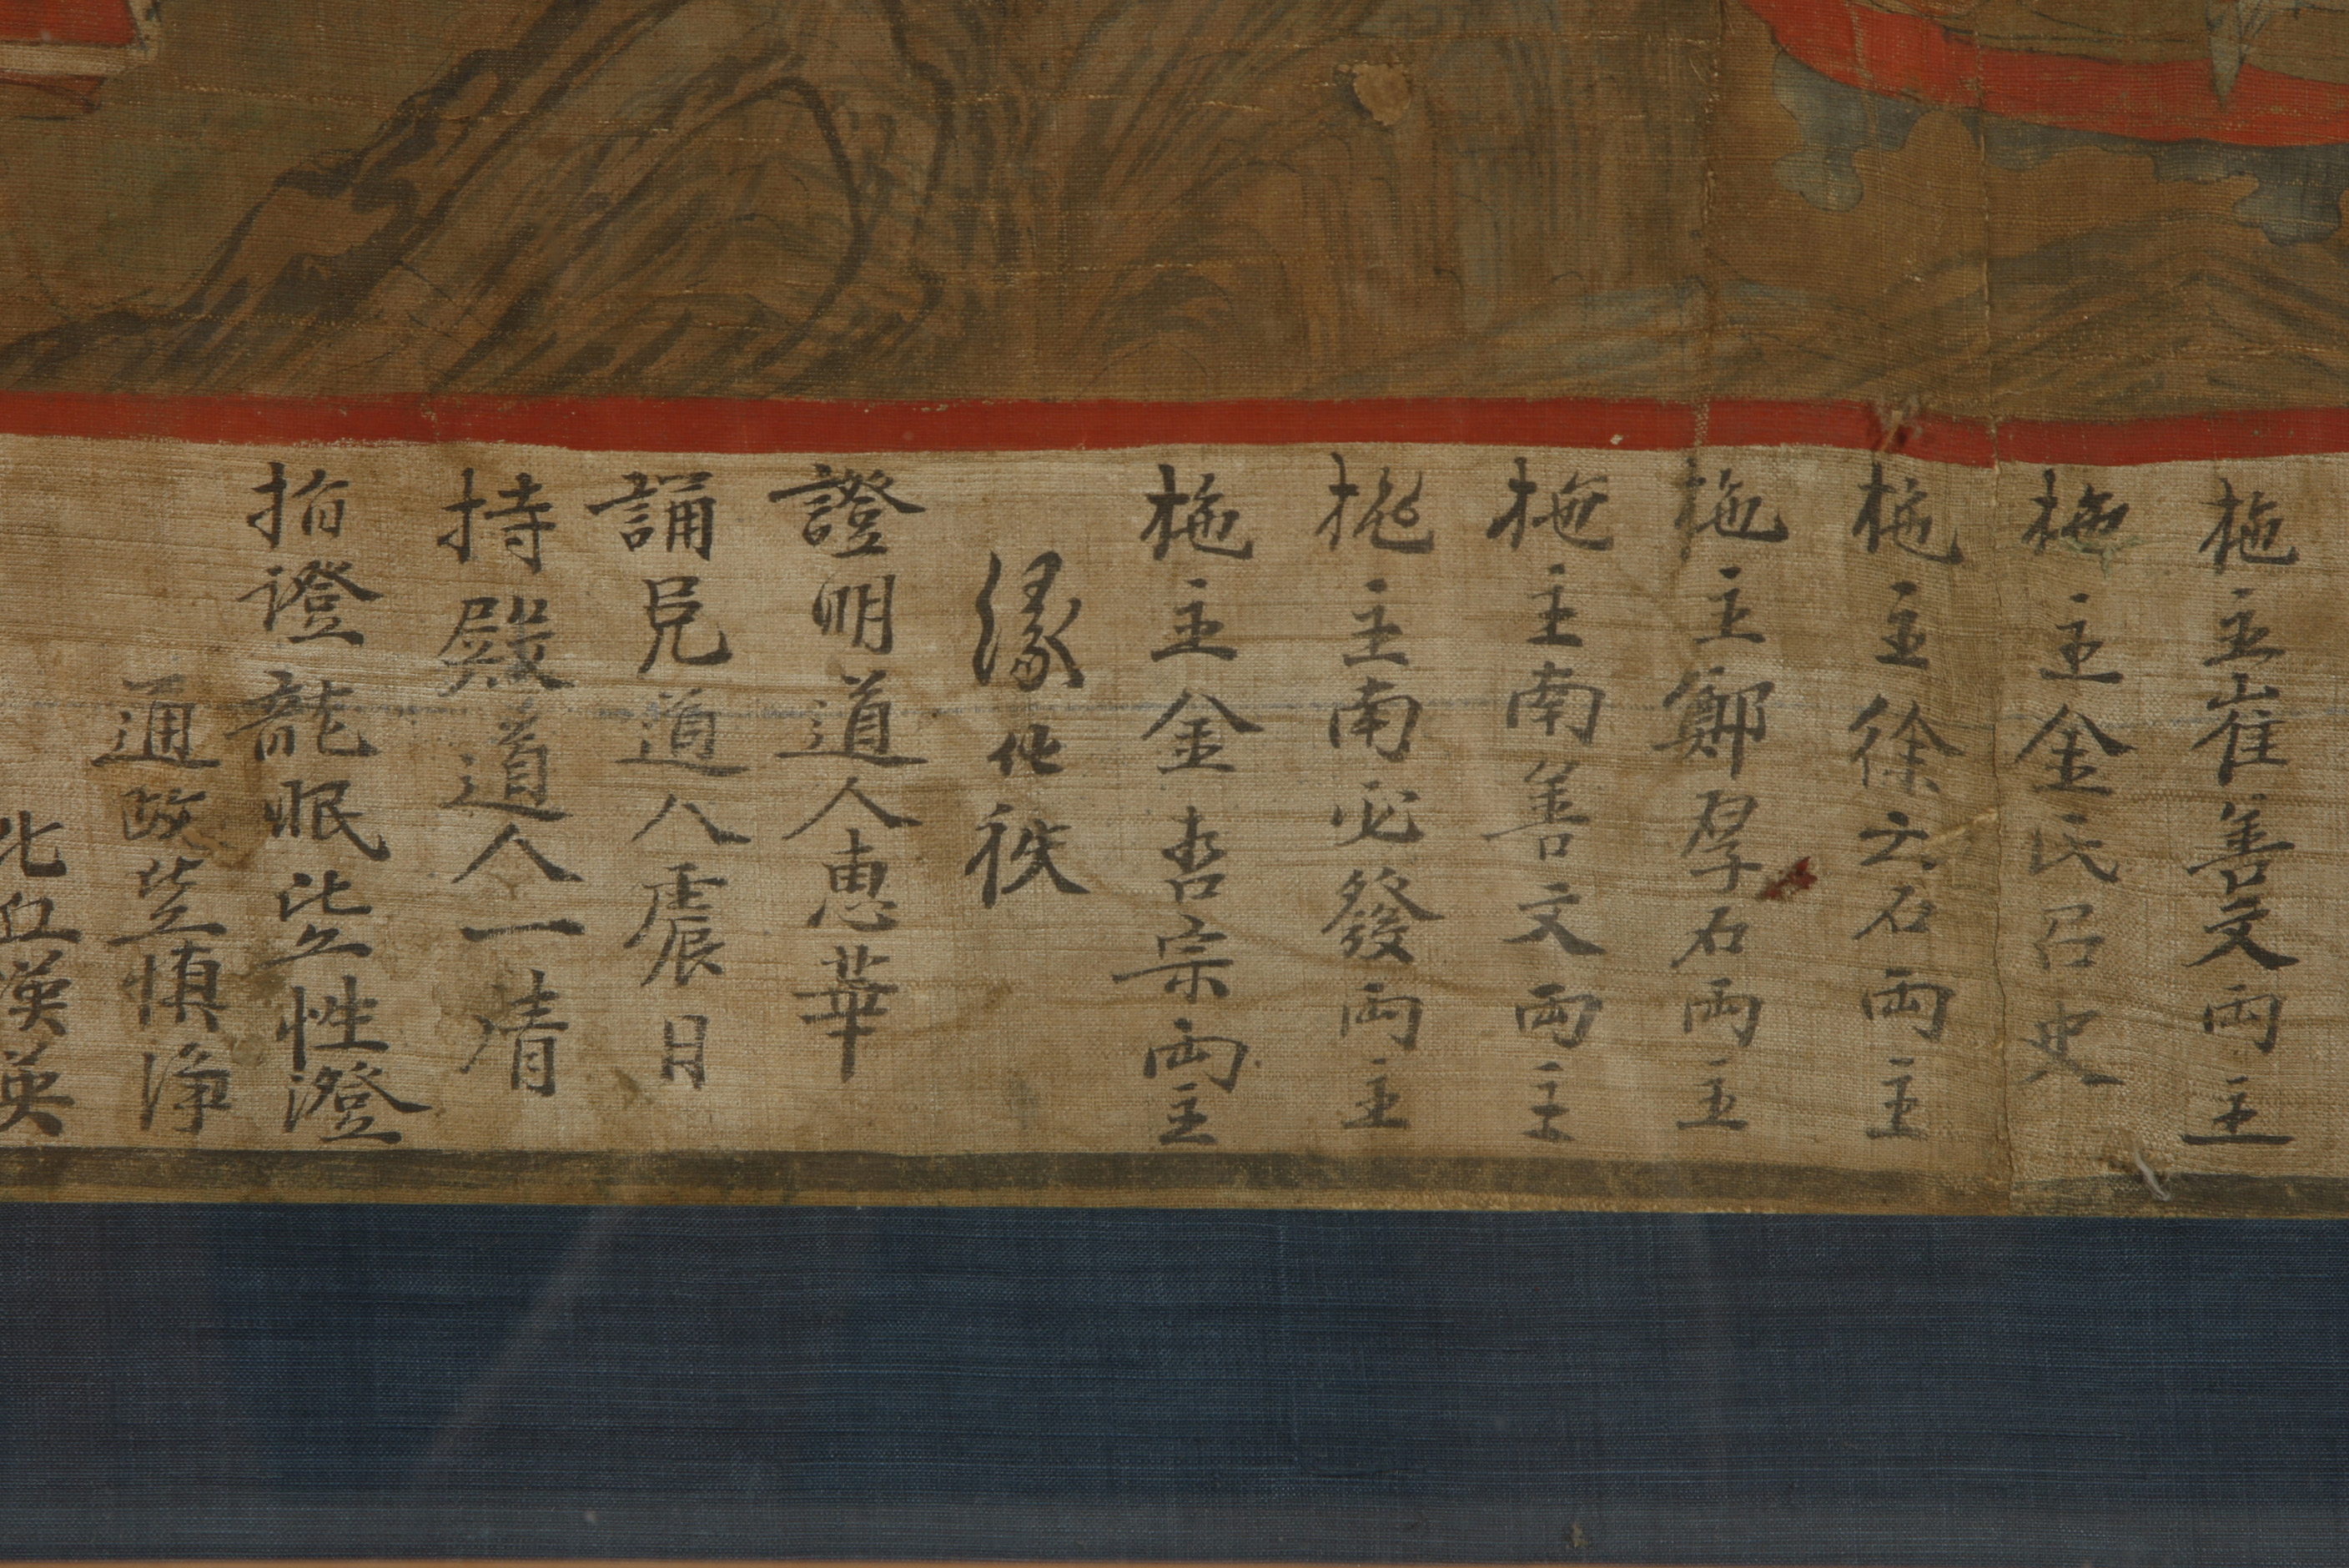 施主崔善文両主
施主金氏召史
施主徐云石両主
施主鄭厚石両主
施主南善文両主
施主南必發両主
施主金哲宗両主
緣化秩
證明道人惠華
誦呪道人震日
持殿道人一清
指證龍眠比丘性澄
通政比丘慎淨
比丘漢英